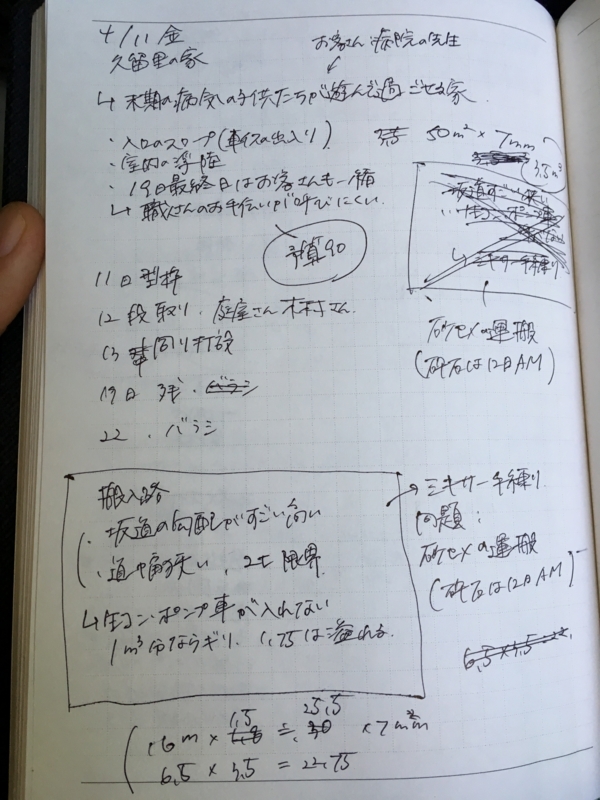 4/11 金
久留里の家
お客さん 病院の先生
↳ 末期の病気の子供たちが遊んで過ごせる家
・入口のスロープ(車イスの出入り)
50m² × 7mm
3.5m³
・室内の
・19日最終日はお客さんも一緒
↳ 職人さんのお手伝いが呼びにくい.
予算90
11日型枠
12 段取り. 庭屋さん 木村さん.
13 打設
19日 残. バラシ
22 . バラシ
砂セメの運搬
(砕石は12日AM)
搬入路
・坂道の勾配がすごい
・道幅狭い. 2t 限界
↳ 生コン・ポンプ車が入れない
1m³分ならギリ. 1.75は溢れる.
→ ミキサー手練り
問題:
砂セメの運搬
(砕石は12日AM)
1.5 25.5
6.5 × 3.5 = 22.75